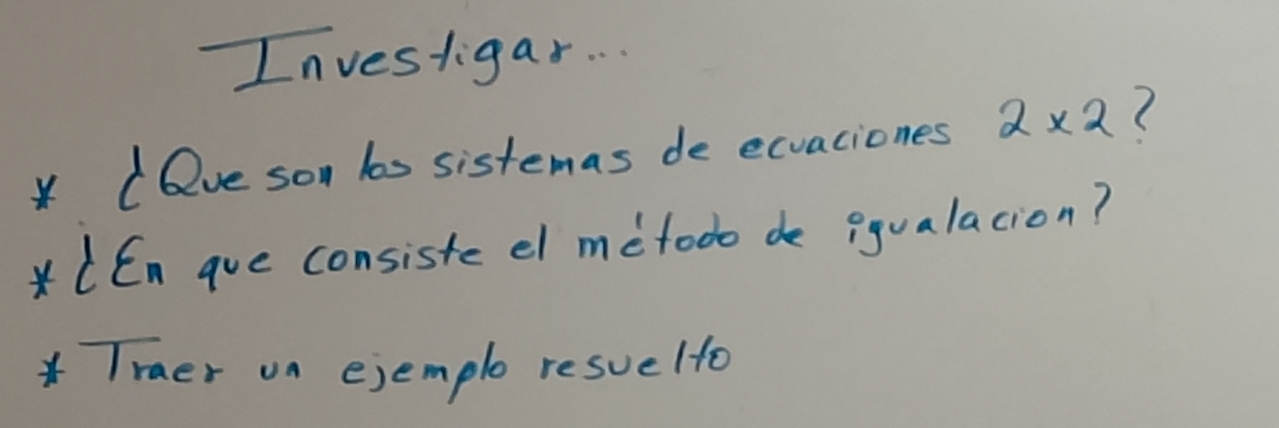 Investigar...
* ¿Que son los sistemas de ecuaciones 2x2?
* ¿En que consiste el método de igualacion?
* Traer un ejemplo resuelto